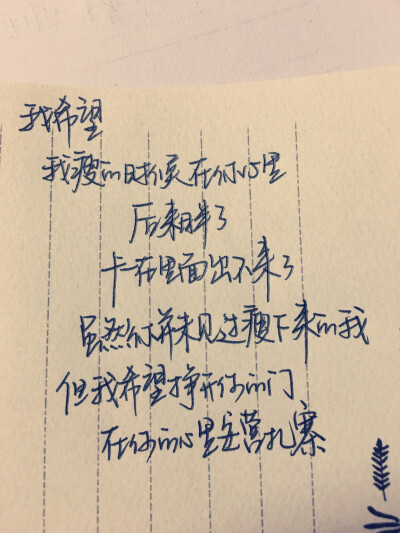 我希望
我瘦的时候在你心里
后来胖了
卡在里面出不来了
虽然你并未见过瘦下来的我
但我希望挣开你的门
在你的心里安营扎寨